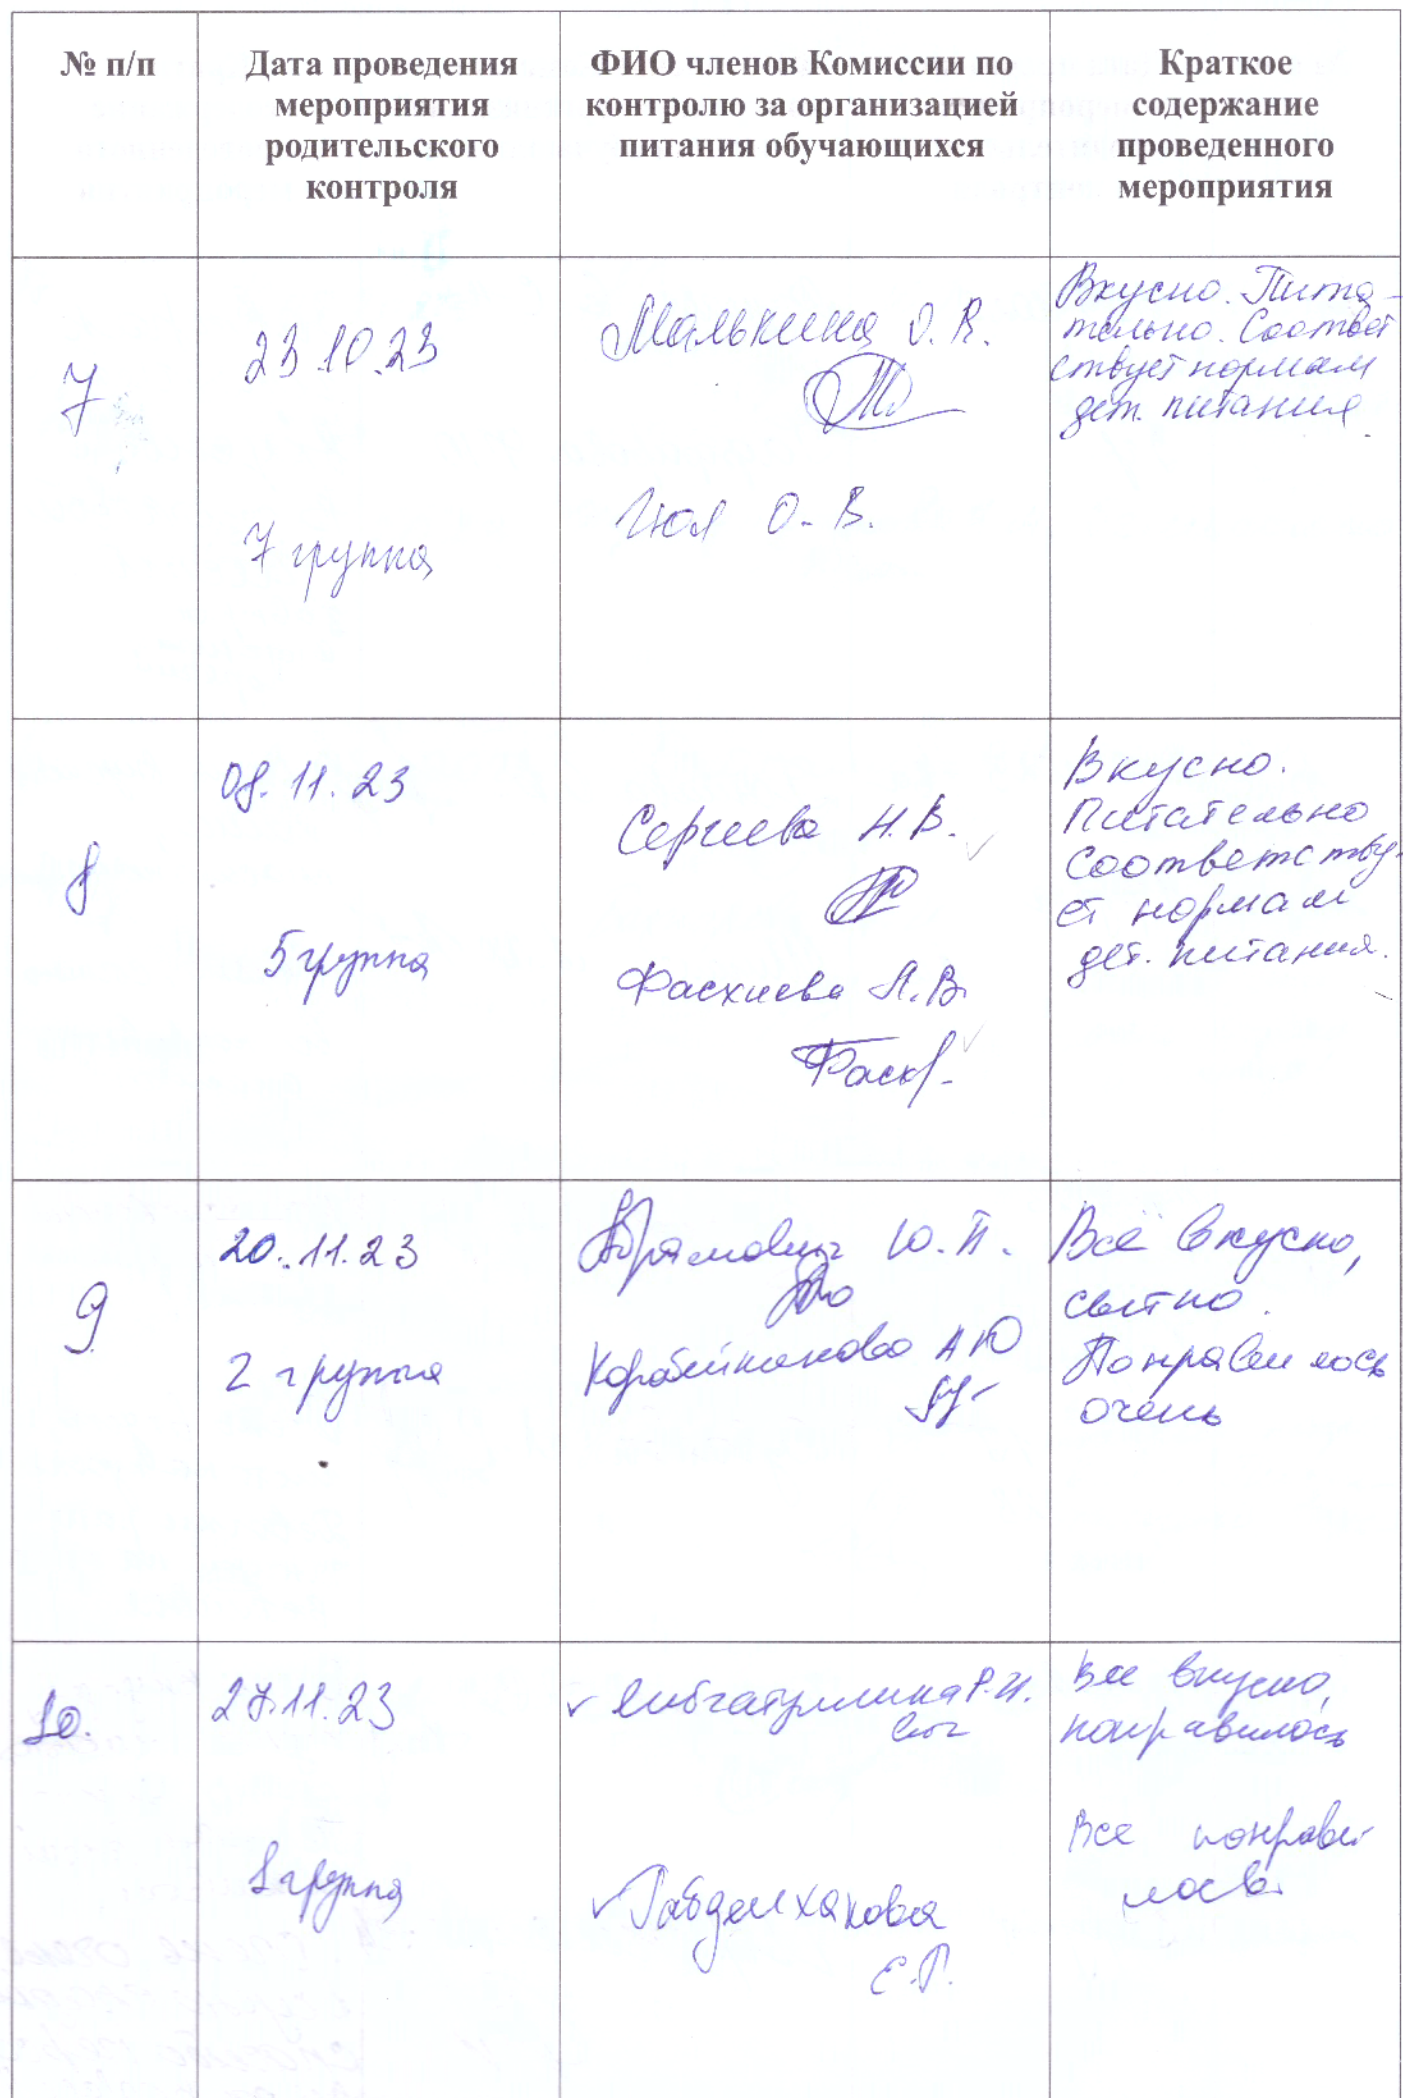 № п/п
Дата проведения
мероприятия
родительского
контроля
ФИО членов Комиссии по
контролю за организацией
питания обучающихся
Краткое
содержание
проведенного
мероприятия
7
23.10.23
7 группа
Малькина О.В.
Гюл О.В.
Вкусно. Пита-
тельно. Соответ
ствует нормам
дет. питания
8
08.11.23
5 группа
Сергеева Н.В.
Фасхиева Л.В.
Вкусно.
Питательно
Соответству-
ет нормам
дет. питания.
9
20.11.23
2 группа
Абрамович Ю.П.
Коробейникова А Ю
Всё вкусно,
сытно.
Понравилось
очень
10.
27.11.23
1 группа
Либгатуллина Р.И.
Габделхакова
Е.Г.
Все вкусно,
понравилось
Все понрави
лось